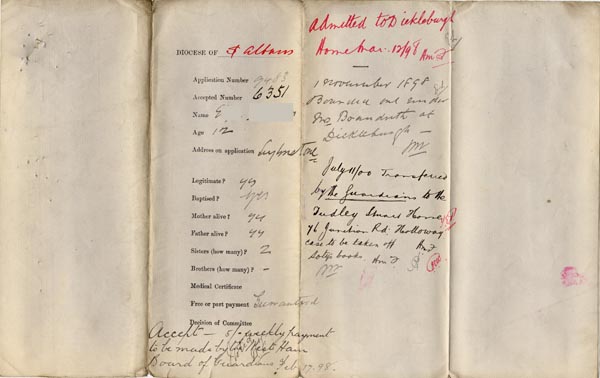 DIOCESE OF St Albans
Application Number 9483
Accepted Number 6351
Name E
Age 12
Address on application Leytonstone
Legitimate? yes
Baptised? yes
Mother alive? yes
Father alive? yes
Sisters (how many)? 2
Brothers (how many)? -
Medical Certificate
Free or part payment Guaranteed
Decision of Committee
Accept - 5/- weekly payment
to be made by the West Ham
Board of Guardians Feb 17.98.
Admitted to Dickleburgh
Home Mar. 12/98
1 November 1898
Boarded out under
Mrs Boardrith at
Dickleburgh -
July 11/00 Transferred
by the Guardians to the
Dudley Stuart Home
76 Junction Rd. Holloway
case to be taken off
Sotys books.